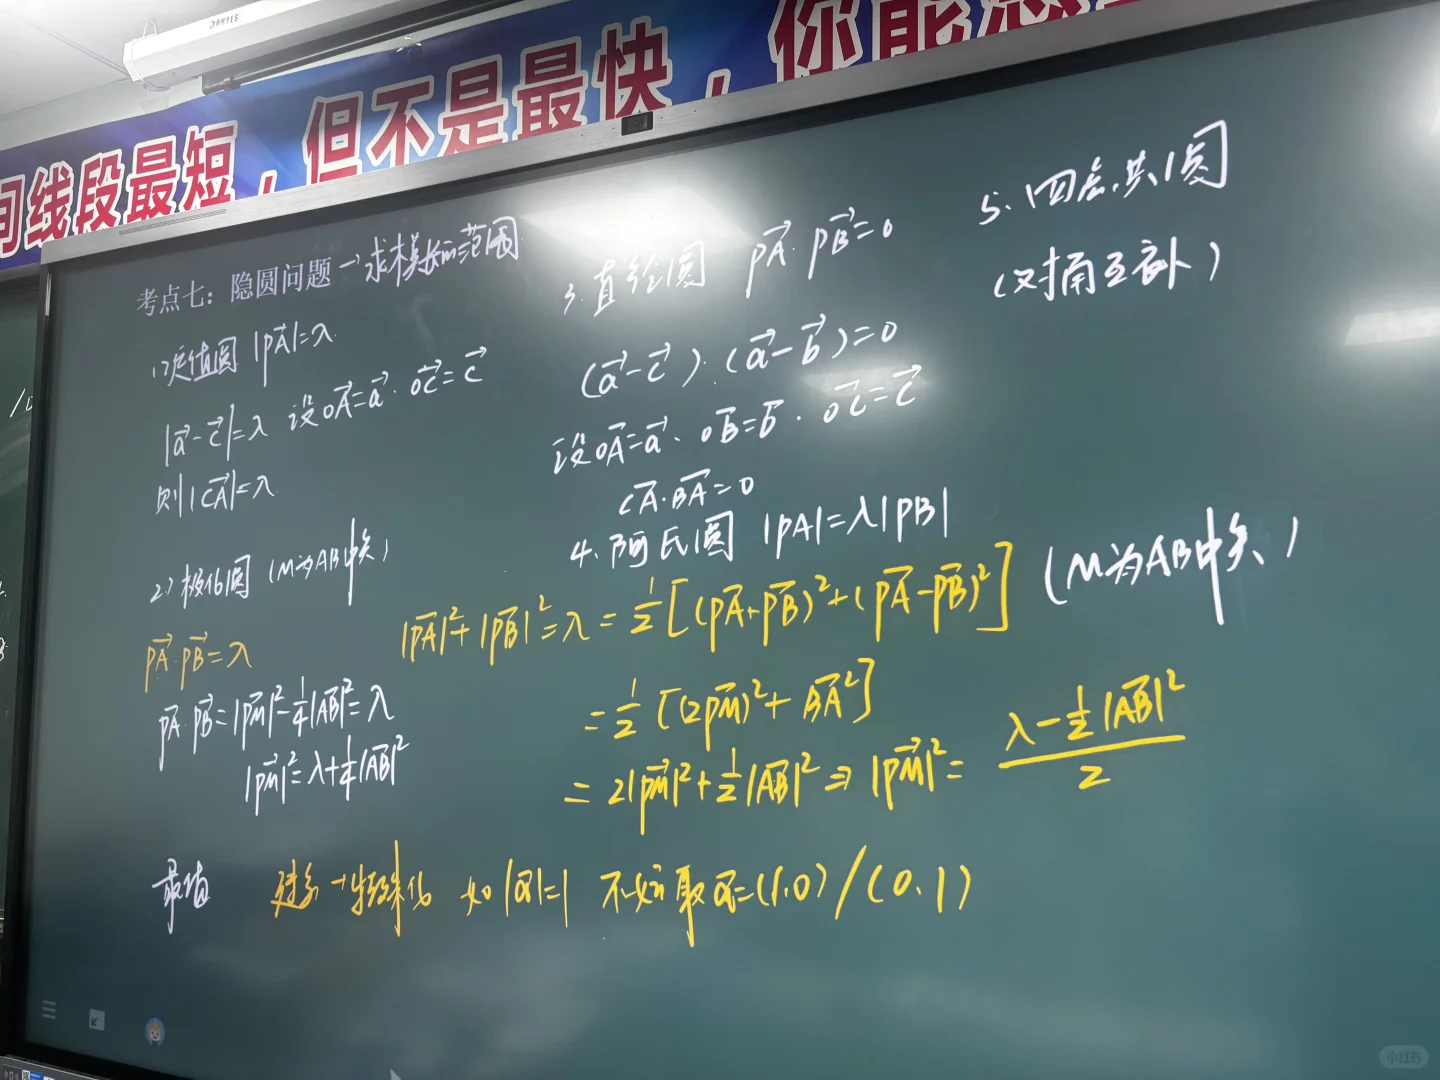 DANYES
间线段最短，但不是最快，你能
考点七：隐圆问题→求模长的范围
1)定值圆 |PA→|=λ
|a→-c→|=λ 设OA→=a→. OC→=c→
则|CA→|=λ
2) 极化圆 (M为AB中点)
PA→·PB→=λ
PA→·PB→=|PM→|²-1/4|AB→|²=λ
|PM→|²=λ+1/4|AB→|²
3.直径圆 PA→·PB→=0
(a→-c→)·(a→-b→)=0
设OA→=a→、OB→=b→. OC→=c→
CA→·BA→=0
4.阿氏圆 |PA|=λ|PB|
|PA→|²+|PB→|²=λ=1/2[(PA→+PB→)²+(PA→-PB→)²] (M为AB中点)
=1/2[(2PM→)²+BA→²]
=2|PM→|²+1/2|AB→|²⇒|PM→|²=(λ-1/2|AB→|²)/2
5.四点共圆
(对角互补)
最值 建系→特殊化 如|a→|=1 不妨取a→=(1.0)/(0.1)
小红书